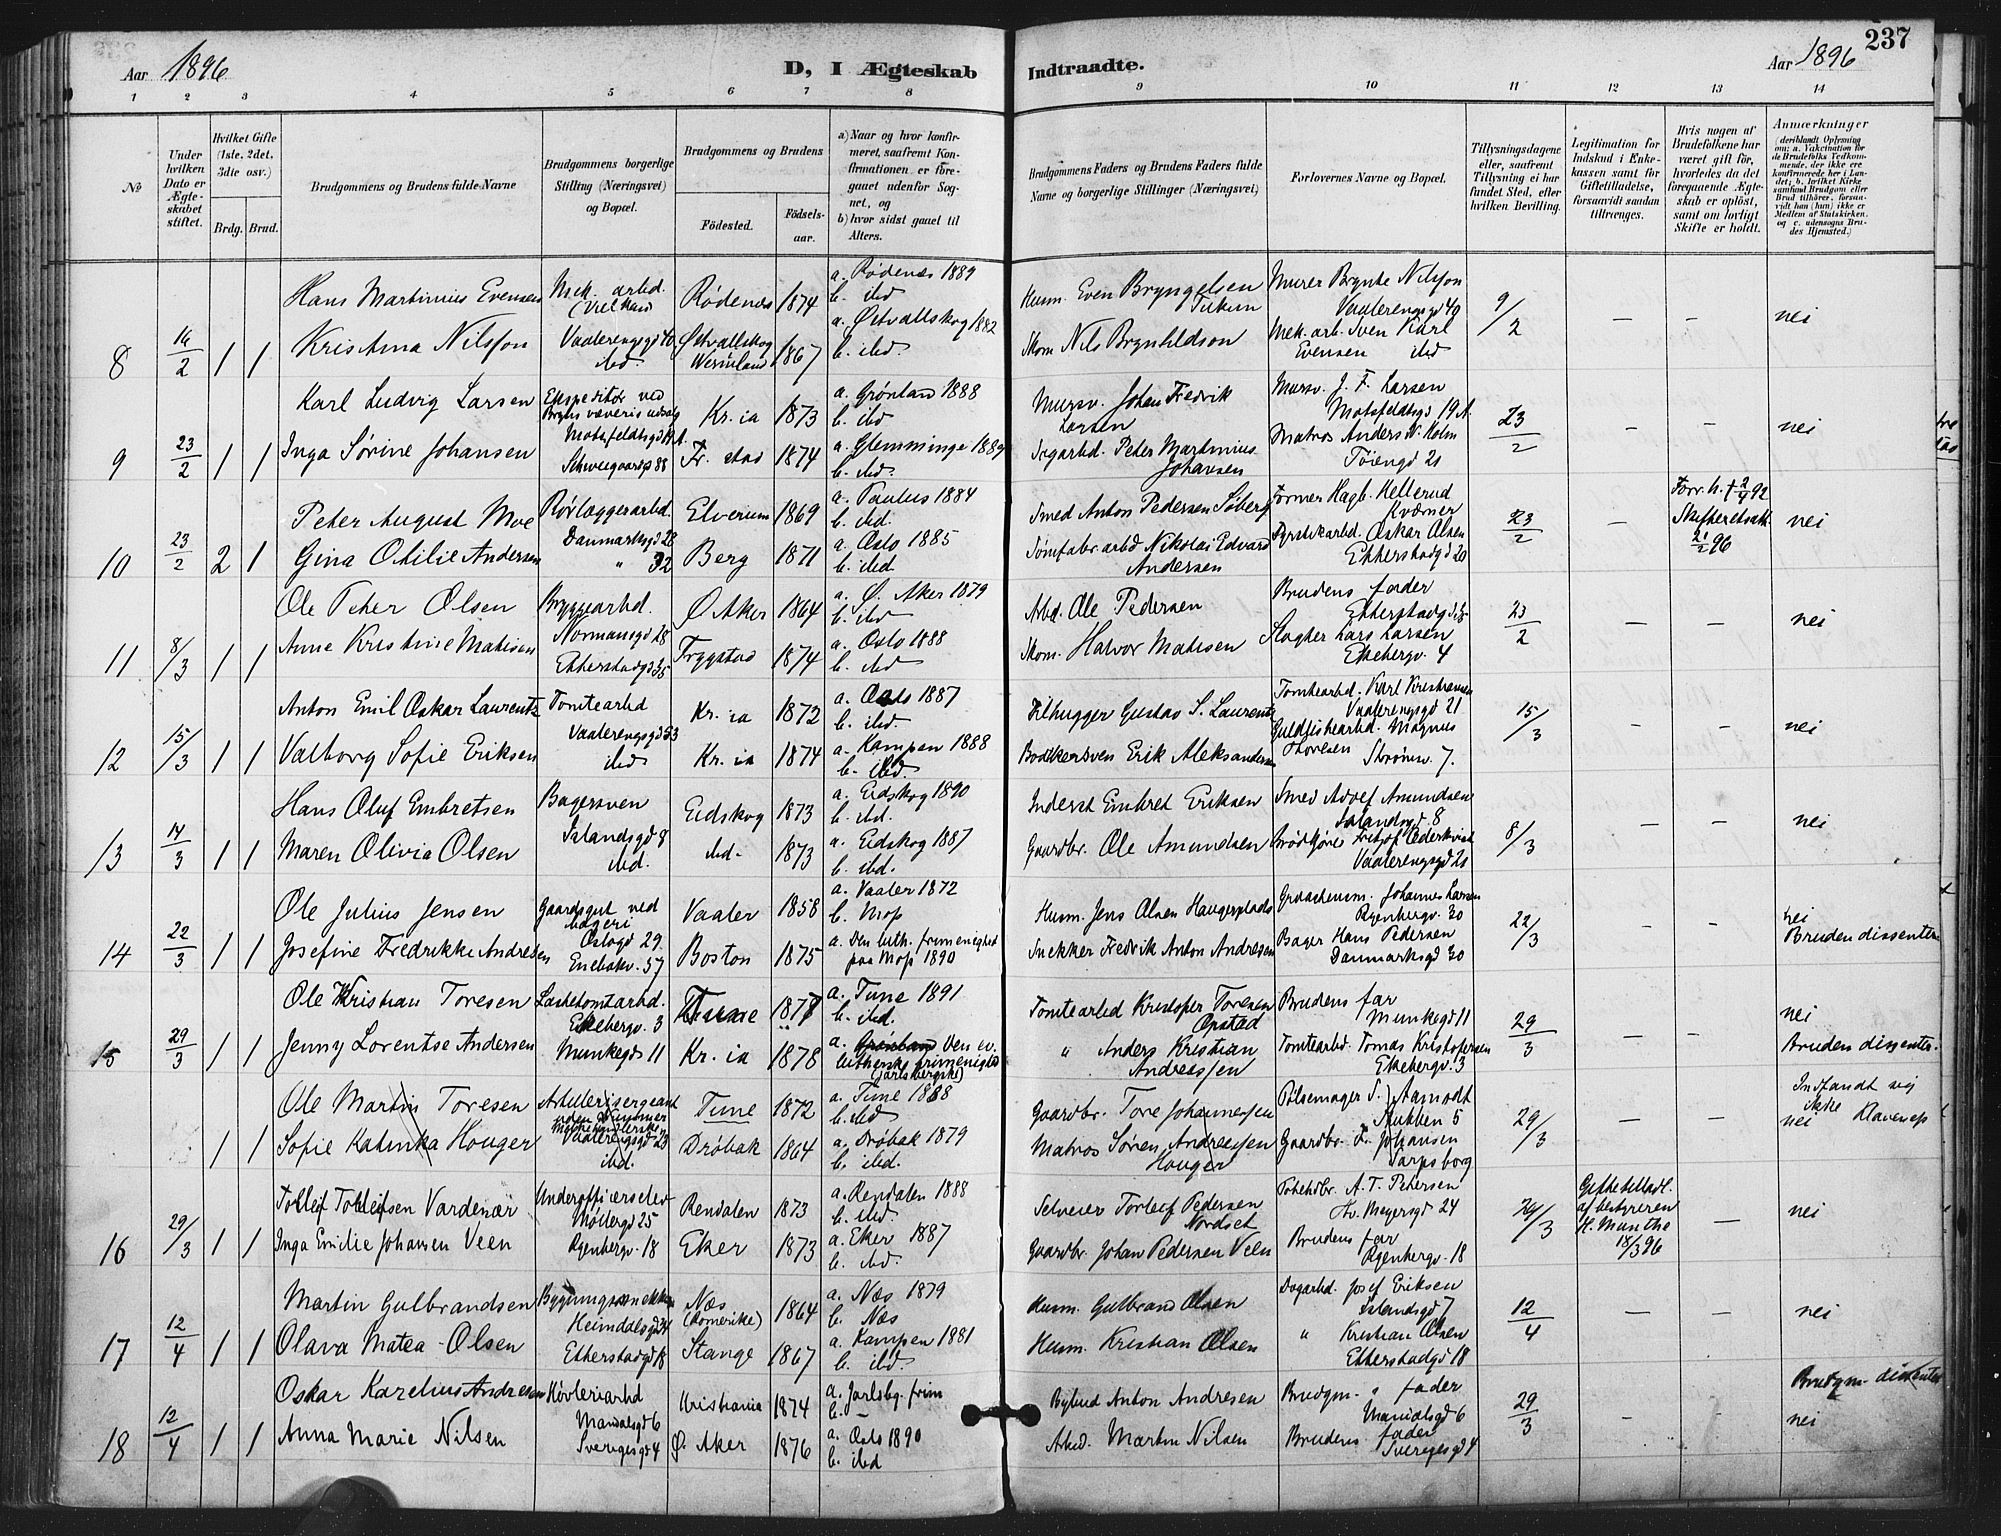 237
Aar 1896
D, I Ægteskab
Indtraadte.
Aar 1896
1 2 3 4 5 6 7 8 9 10 11 12 13 14
№
Under hvilken Dato er Ægteskabet stiftet.
Hvilket Gifte (1ste, 2det, 3die osv.)
Brdg. Brud.
Brudgommens og Brudens fulde Navne
Brudgommens borgerlige Stilling (Næringsvei) og Bopæl.
Brudgommens og Brudens
Fødested.
Fødselsaar.
a) Naar og hvor konfirmeret, saafremt Konfirmationen er foregaaet udenfor Sognet, og
b) hvor sidst gaaet til Alters.
Brudgommens Faders og Brudens Faders fulde Navne og borgerlige Stillinger (Næringsvei)
Forlovernes Navne og Bopæl.
Tillysningsdagene eller, saafremt Tillysning ei har fundet Sted, efter hvilken Bevilling.
Legitimation for Indskud i Enkekassen samt for Giftetilladelse, forsaavidt saadan tiltrænges.
Hvis nogen af Brudefolkene har været gift før, hvorledes da det foregaaende Ægteskab er opløst, samt om lovligt Skifte er holdt.
Anmærkninger
(deriblandt Oplysning om: a. Vakcination for de Brudefolks Vedkommende, der ikke ere konfirmerede her i Landet; b. hvilket Kirkesamfund Brudgom eller Brud tilhører, forsaavidt han (hun) ikke er Medlem af Statskirken, og c. udensogns Brudes Hjemsted.)
Hans Martinius Evensen Mek. arbd. Rødenæs 1874 a. Rødenæs 1889 b. ibd Husm. Even Bryngelsen Murer Brynte Nilsson Vaalerengsgd 40 9/2 — — nei
8 16/2 1 1 Kristina Nilsson Vaalerengsgd 40 ibd. Østvallskog Wermland 1867 a. Østvallskog 1882 b. ibd. Skom. Nils Brynhildson Mek. arb. Sven Karl Evensen ibd
Karl Ludvig Larsen Ekspeditør ved Motzfeldtsgd 19 A. Kr.ia 1873 a. Grønland 1888 b. ibd Mursv. Johan Fredrik Larsen Mursv. J. F. Larsen Motzfeldtsgd 19 A. 23/2 — — nei
9 23/2 1 1 Inga Sørine Johansen Schweigaardsg 88 Fr. stad 1874 a. Glemminge 1889 b. ibd. Sagarbd. Peter Martinius Johansen Matros Anders N. Holm Tøiengd 21
Peter August Moe Rørlæggerarbd. Danmarksgd 28 Elverum 1869 a. Paulus 1884 b. ibd. Smed Anton Pedersen Søberg Former Hagb. Hellerud Kværner 23/2 — Forr. h. † 2/4 92 Skifteretsatt. 21/2 96 nei
10 23/2 2 1 Gina Otilie Andersen " 32 Berg 1871 a. Oslo 1885 b. ibd Nikolai Edvard Andersen Fyrstikarbd. Oskar Olsen Etterstadgd 20
Ole Peter Olsen Bryggearbd. Normansgd 28 Ø. Aker 1864 a. Ø. Aker 1879 b. ibd Arbd. Ole Pedersen Brudens fader Etterstadgd 35 23/2 — — nei
11 8/3 1 1 Anne Kristine Matisen Etterstadgd 35 Trygstad 1874 a. Oslo 1888 b. ibd Skom. Halvor Matisen Slagter Lars Larsen Ekebergv. 4
Anton Emil Oskar Laurentz Tomtearbd Vaalerengsgd 53 Kr.ia 1872 a. Oslo 1887 b. ibd. Filhugger Gustav S. Laurentz Tomtearbd. Karl Kristiansen Vaalerengsgd 21 15/3 — — nei
12 15/3 1 1 Valborg Sofie Eriksen ibd Kr.ia 1874 a. Kampen 1888 b. ibd. Bødkersven Erik Aleksandersen Guldlistearbd. Magnus Thoresen Strømsv. 7.
Hans Oluf Embretsen Bagersven Islandsgd 8 Eidskog 1873 a. Eidskog 1890 b. ibd. Inderst Embret Eriksen Smed Adolf Amundsen Islandsgd 8 8/3 — — nei
13 14/3 1 1 Maren Olivia Olsen ibd. ibd. 1873 a. Eidskog 1887 b. ibd. Gaardbr. Ole Amundsen Brødkjører Fritjof Cederkvist Vaalerengsgd 21
Ole Julius Jensen Gaardsgut ved bageri Oslogd 29. Vaaler 1858 a. Vaaler 1872 b. Mos Husm. Jens Olsen Haugerplads Johannes Larsen Ryenbergv. 30 22/3 — — nei
14 22/3 1 1 Josefine Fredrikke Andresen Enebakv. 57 Boston 1875 a. Den luth. frimenighed paa Mos 1890 Snekker Fredrik Anton Andresen Bager Hans Pedersen Danmarksgd 30 Bruden dissenter
Ole Kristian Toresen Lastetomtarbd. Ekebergv. 3 Tune 1877 a. Tune 1891 b. ibd. Tomtearbd Kristofer Toresen Opstad Brudens far Munkegd 11 29/3 — — nei
15 29/3 1 1 Jenny Lorentse Andersen Munkegd 11 Kr.ia 1878 a. Grønland Den ev. lutherske frimenighed (Jarlsbergske) " Anders Kristian Andreassen Tomtearbd. Tomas Kristofersen Ekebergv. 3 Bruden dissenter.
Ole Martin Toresen Artilerisergeant uden Nummer Vaalerengsgd 23 Tune 1872 a. Tune 1888 b. ibd Gaardbr. Tore Johannessen Pølsemager S. Aamodt Stubben 5 29/3 — — Indfandt sig ikke
1 1 Sofie Katinka Houger ibd. Drøbak 1864 a. Drøbak 1879 b. ibd. Matros Søren Andreassen Houger Gaardbr. L. Johansen Sarpsborg nei
Tollef Tollefsen Vardenær Underofficerselev Møllergd 25 Rendalen 1873 a. Rendalen 1888 b. ibd. Selveier Torleif Pedersen Nordset A. T. Petersen Th. Meyersgd 24 29/3 Giftetilladl. af bestyreren H. Munthe 18/3 96 — nei
16 29/3 1 1 Inga Emilie Johansen Veen Ryenbergv. 18 Eker 1873 a. Eker 1887 b. ibd. Gaardbr. Johan Pedersen Veen Brudens far Ryenbergv. 18
Martin Gulbrandsen Bygningssnekker Heimdalsgd 34 Næs (Romerike) 1864 a. Næs 1879 b. Næs Husm. Gulbrand Olsen Dagarbd. Josef Eriksen Islandsgd 7 12/4 — — nei
17 12/4 1 1 Olava Matea Olsen Etterstadgd 18 Stange 1867 a. Kampen 1881 b. ibd. Husm. Kristian Olsen " Kristian Olsen Etterstadgd 18
Oskar Karelius Andresen Høvleriarbd Mandalsgd 6 Kristiania 1874 a. Jarlsbg. frim b. - Bybud Anton Andresen Brudgm. " fader Mandalsgd 6 29/3 — — Brudgm. dissenter
18 12/4 1 1 Anna Marie Nilsen Sverigesgd 4 Ø. Aker 1876 a. Oslo 1890 b. ibd Arbd. Martin Nilsen Brudens fader Sverigesgd 4 nei